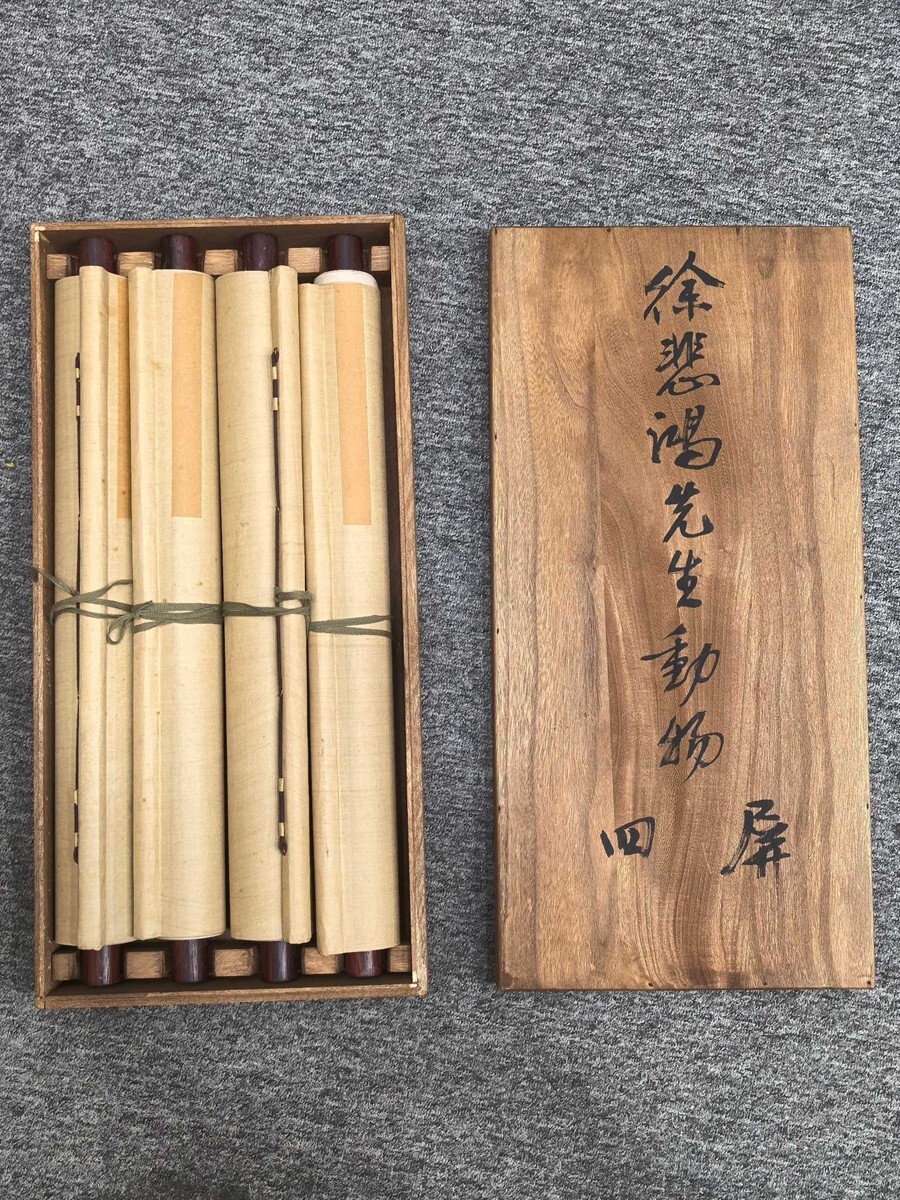 徐悲鴻先生動物
屏四